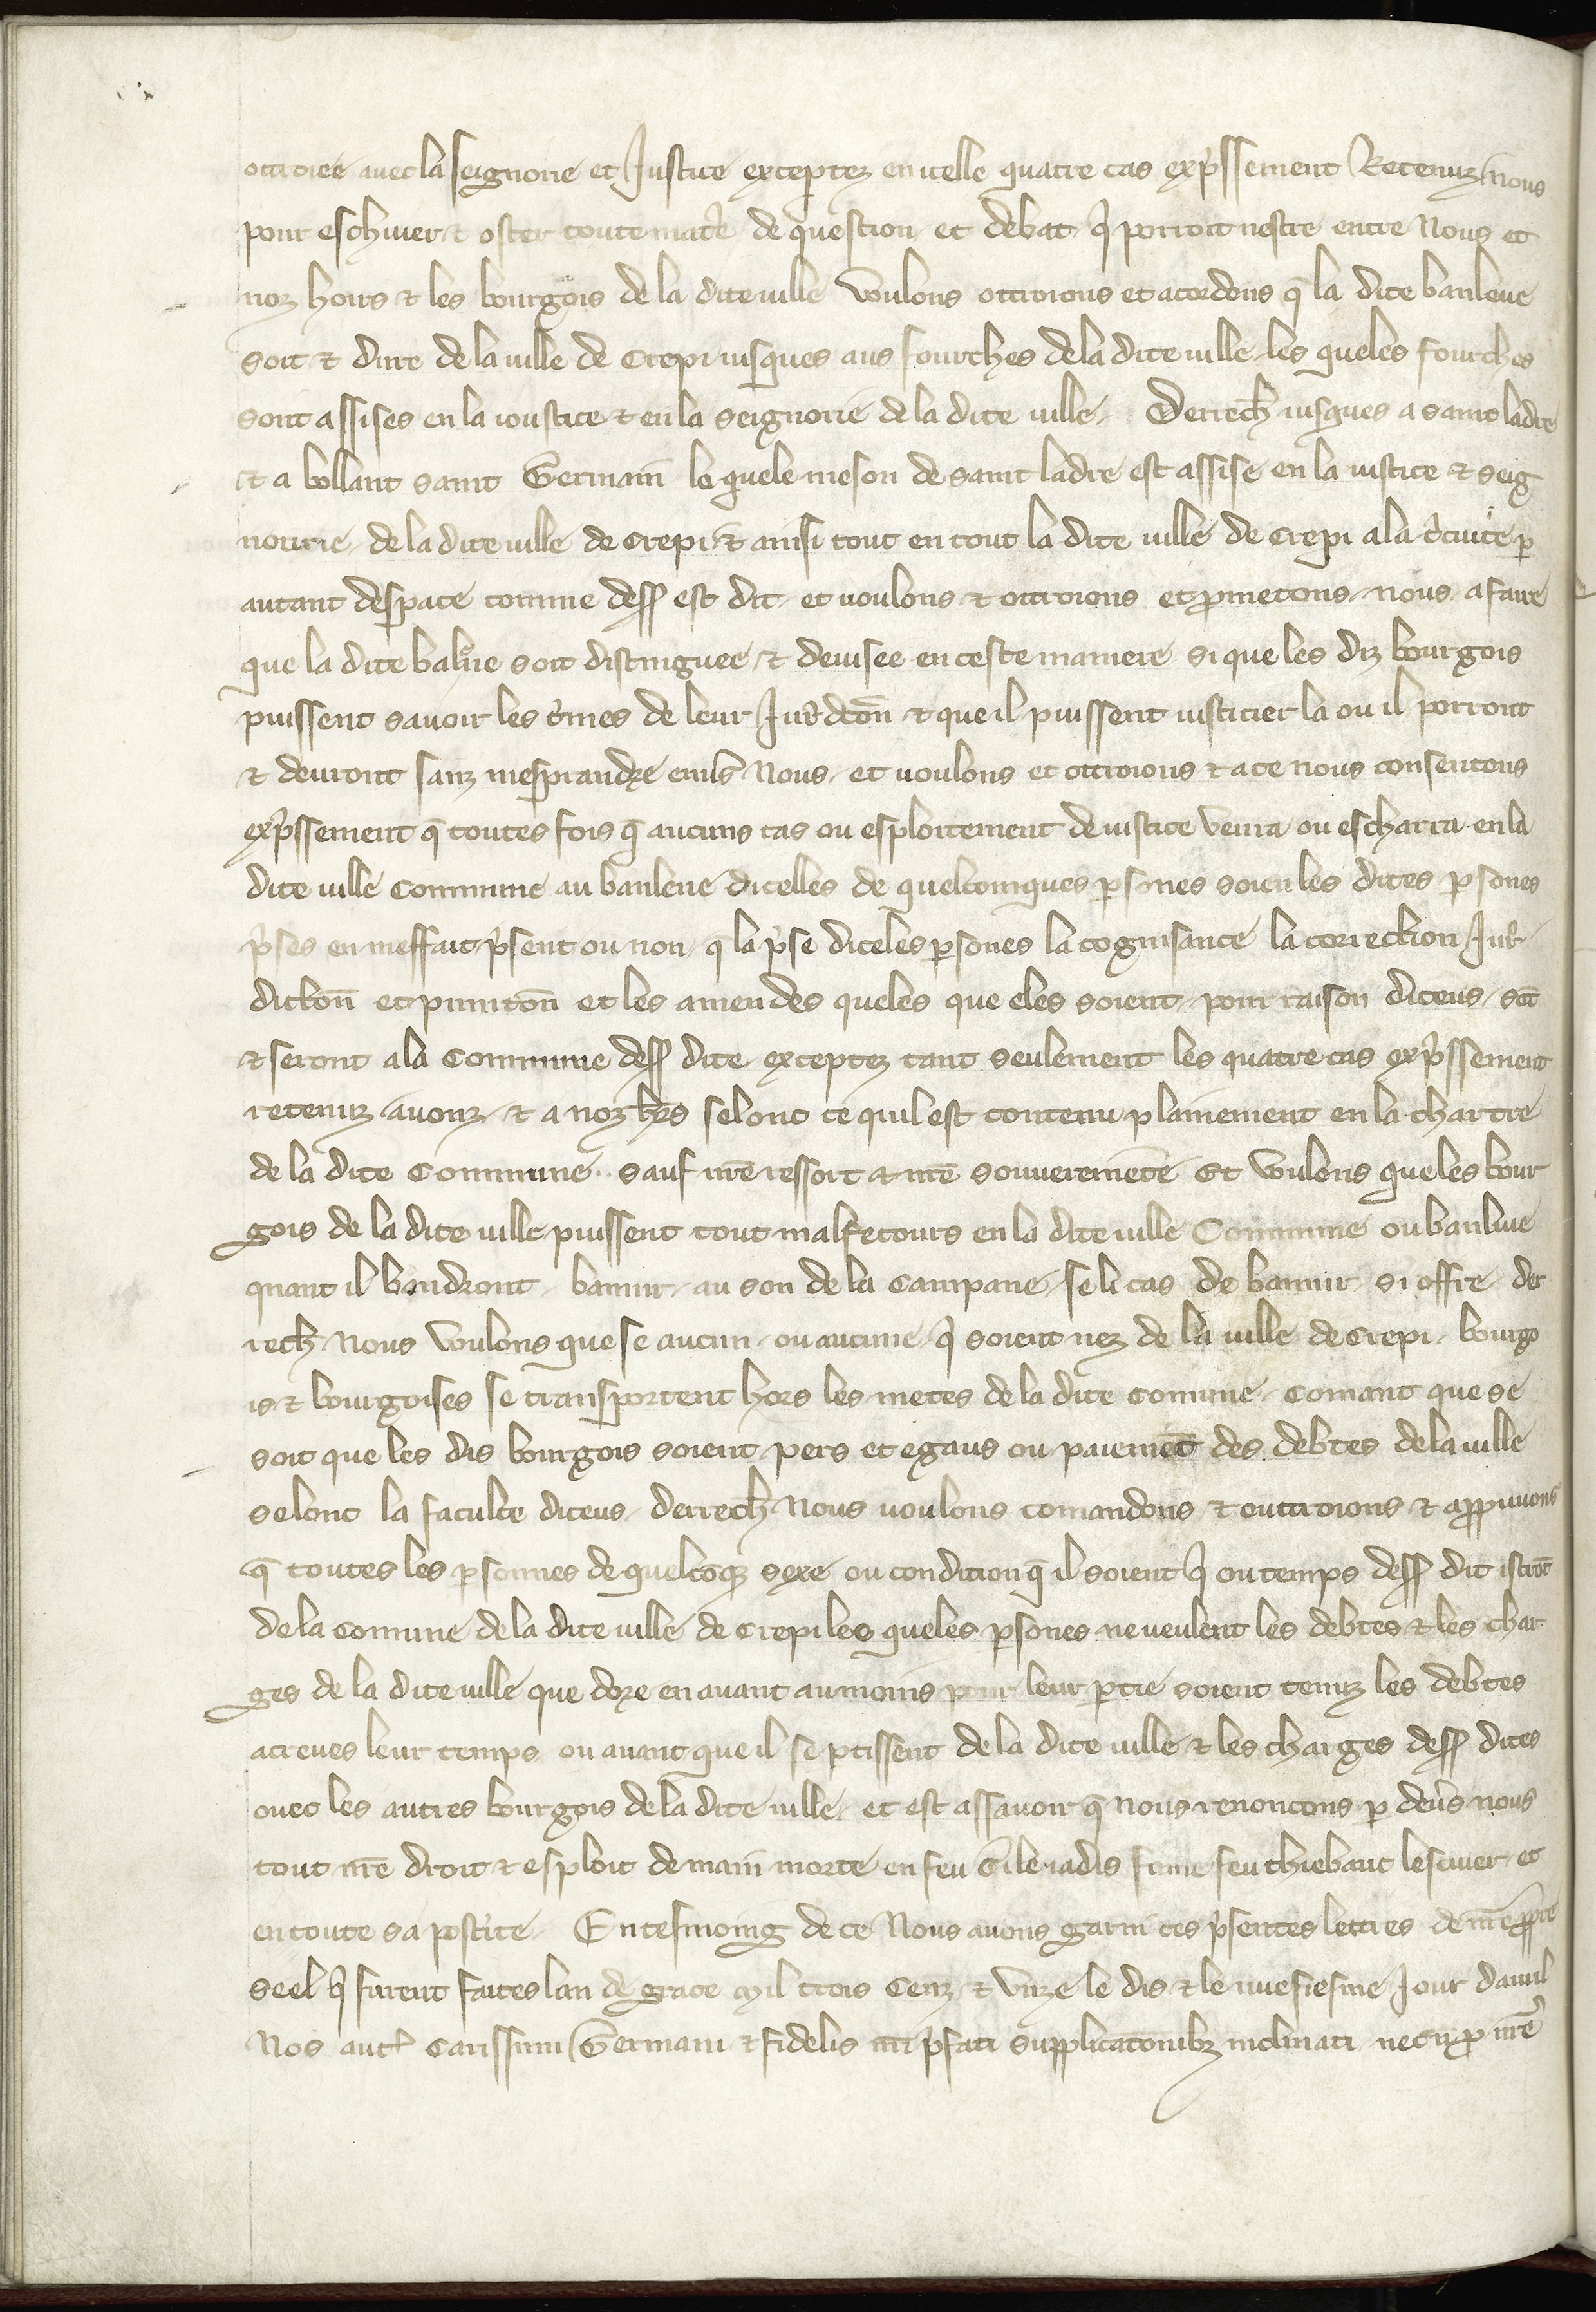 ottroiee auec la seignorie et Justice exceptez en icelle quatre cas exp̃ssement Retenuz nous
pour eschiuer ⁊ oster toute matẽ de question et debat q̃ porroit nestre entre Nous et
noz hoirs ⁊ les bourgois de la dite uille Voulons ottroions et acordons q̃ la dite banleue
soit ⁊ dure de la uille de Crepi iusques aus fourches de la dite uille les queles fourches
sont assises en la ioustice ⁊ en la seignorie de la dite uille Derrech̃ iusques a saint ladre
et a bollant saint Germain le quele meson de saint ladre est assise en la iustice ⁊ seig
nourie de la dite uille de Crepi ⁊ ainsi tout en tout la dite uille de Crepi a la c̃cuite p̱
autant despace comme dess̃ est dit et uoulons ⁊ ottroions et ꝓmetons nous a faire
que la dite balieue soit distinguee ⁊ deuisee en ceste maniere si que les diz bourgois
puissent sauoir les t̃mes de leur Jur̃dcõn ⁊ que il puissent iusticier la ou il porront
⁊ deuront sanz mesprandre enũs Nous et uoulons et ottroions ⁊ a ce nous consentons
exp̃ssement q̃ toutes fois q̃ aucuns cas ou esploitement de iustice venra ou escharra en la
dite uille Commune au banleue dicelles de quelconques ꝑsones soien les dites ꝑsones
p̃ses en meffait p̃sent ou non q̃ la p̃se diceles ꝑsones la cognisance la correction Jur̃
dictiõn et puniciõn et les amendes queles que eles soient pour raison diceus sõt
⁊ seront a la Commune dess̃ dite exceptez tant seulement les quatre cas exp̃ssement
retenuz a uonz ⁊ a noz h̃rs selonc ce quil est contenu plainement en la chartre
de la dite Commune sauf nr̃e ressort ⁊ nr̃e souuerenietè Et Voulons que les bour
gois de la dite uille puissent tout malfetours en la dite uille Commune ou banliue
quant il vaudront bannir au son de la Campane se li cas de bannir si offre der
rech̃ Nous Voulons que se aucun ou aucune q̃ soient nez de la uille de Crepi bourgo
is ⁊ bourgoises se transportent hors les metes de la dite Comune Comant que se
soit que les dis bourgois soient pers et egaus ou paiemẽt des debtes de la uille
selonc la faculte diceus derrech̃ Nous uoulons comandons ⁊ outtroions ⁊ approuuons
q̃ toutes les ꝑsonnes de quelcõqz sexe ou condition q̃ il soient q̃ ou temps dess̃ dit istrõt
de la Comune de la dite uille de Crepi les queles ꝑsones ne ueulent les debtes ⁊ les char
ges de la dite uille que dore en auant au moins pour leur ꝑtie soient tenuz les debtes
acreues leur temps ou auant que il se ꝑtissent de la dite uille ⁊ les charges dess̃ dites
ouec les autres bourgois de la dite uille et est assauoir q̃ Nous renoncons ꝑ deũs nous
tout nr̃e droit ⁊ esploit de main morte en feu Gile iadis fame feu thiebaut lescuier et
en toute sa post̃ite En tesmoing de ce Nous auons garni ces p̃sentes lettres de nr̃e ppre
seel q̃ furent faites lan de grace mil trois Cenz ⁊ Vnze le dis ⁊ le nuefiesme Jour dauril
Nos aut̃ Carissimi Germani ⁊ fidelis nr̃i p̃fati supplicatonibz inclinati nec n̄ ꝓ nr̃e